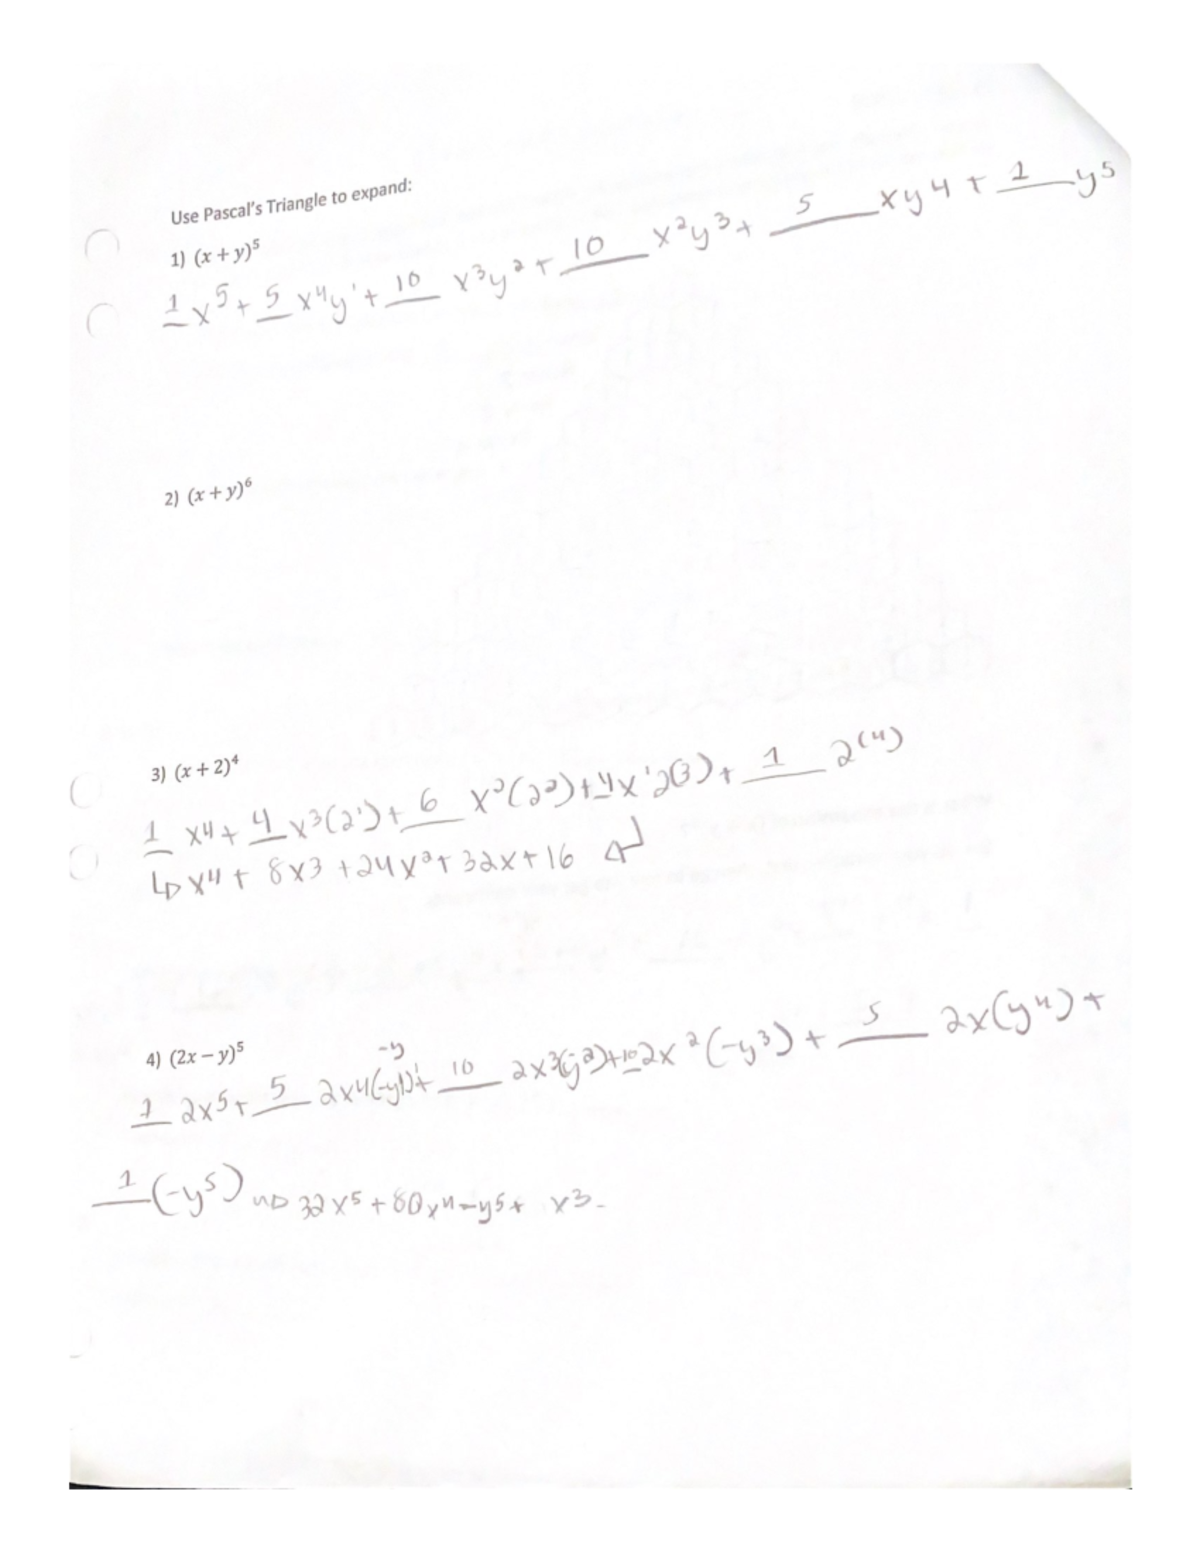 Use Pascal's Triangle to expand:
1) (x + y)⁵
1 x⁵ + 5 x⁴y¹ + 10 x³y² + 10 x²y³ + 5 xy4 + 1 y⁵
2) (x + y)⁶
3) (x + 2)⁴
1 x⁴ + 4 x³(2¹) + 6 x²(2²) + 4x¹2(3) + 1 2⁽⁴⁾
x⁴ + 8x3 + 24x² + 32x + 16
4) (2x − y)⁵
-y
1 2x⁵ + 5 2x4(-y1)¹ + 10 2x³(-y²) + 10 2x²(-y³) + 5 2x(y⁴) +
1 (-y⁵) 32x⁵ + 80x⁴ - y5 + x3 -